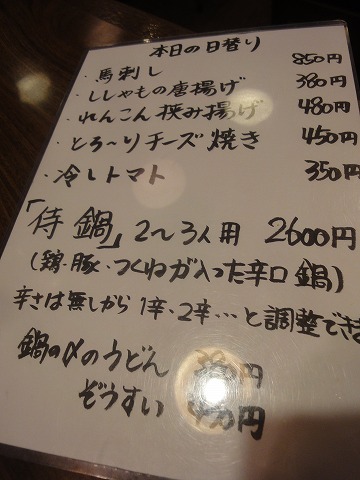 本日の日替り
・馬刺し 850円
・ししゃもの唐揚げ 380円
・れんこん挟み揚げ 480円
・とろ～りチーズ焼き 450円
・冷しトマト 350円
「侍鍋」2～3人用 2600円
(鶏・豚・つくねが入った辛口鍋)
辛さは無しから1辛、2辛…と調整でき
鍋の〆のうどん 円
ぞうすい 円